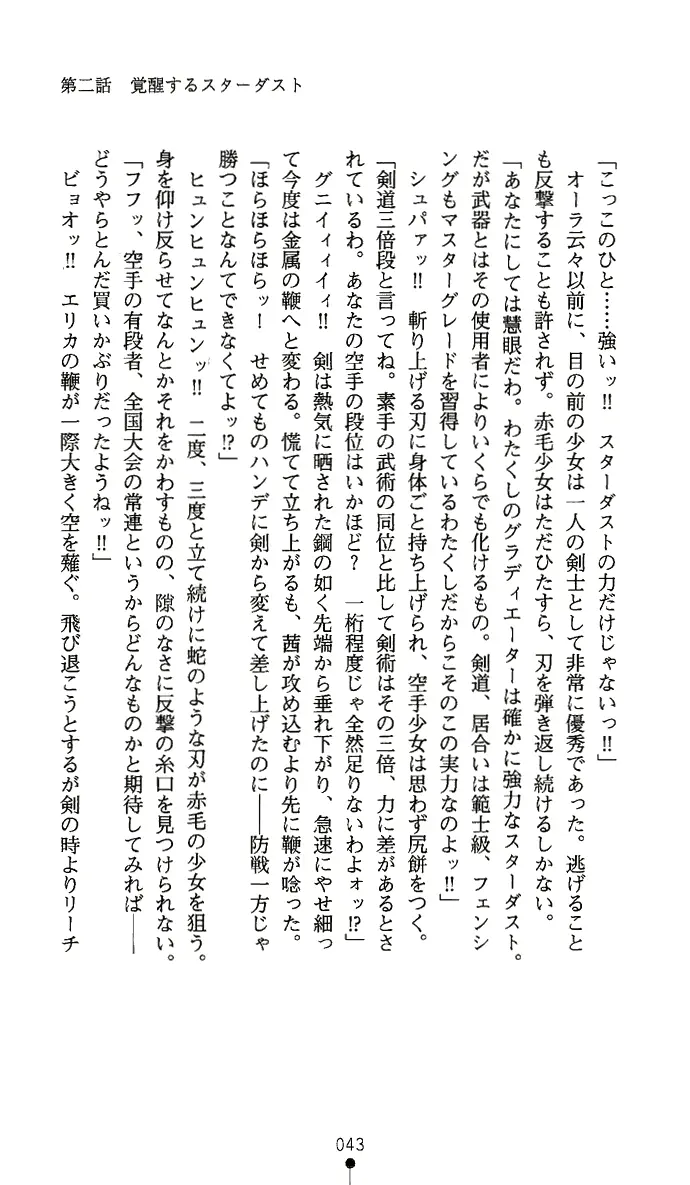 第二話　覚醒するスターダスト
「こっこのひと……強いッ‼　スターダストの力だけじゃないっ‼」
　オーラ云々以前に、目の前の少女は一人の剣士として非常に優秀であった。逃げること
も反撃することも許されず。赤毛少女はただひたすら、刃を弾き返し続けるしかない。
「あなたにしては慧眼だわ。わたくしのグラディエーターは確かに強力なスターダスト。
だが武器とはその使用者によりいくらでも化けるもの。剣道、居合いは範士級、フェンシ
ングもマスターグレードを習得しているわたくしだからこそのこの実力なのよッ‼」
　シュパァッ‼　斬り上げる刃に身体ごと持ち上げられ、空手少女は思わず尻餅をつく。
「剣道三倍段と言ってね。素手の武術の同位と比して剣術はその三倍、力に差があるとさ
れているわ。あなたの空手の段位はいかほど？　一桁程度じゃ全然足りないわよォッ⁉」
　グニィィイィ‼　剣は熱気に晒された鋼の如く先端から垂れ下がり、急速にやせ細っ
て今度は金属の鞭へと変わる。慌てて立ち上がるも、茜が攻め込むより先に鞭が唸った。
「ほらほらほらッ！　せめてものハンデに剣から変えて差し上げたのに――防戦一方じゃ
勝つことなんてできなくてよッ⁉」
　ヒュンヒュンヒュンッ‼　二度、三度と立て続けに蛇のような刃が赤毛の少女を狙う。
身を仰け反らせてなんとかそれをかわすものの、隙のなさに反撃の糸口を見つけられない。
「フフッ、空手の有段者、全国大会の常連というからどんなものかと期待してみれば――
どうやらとんだ買いかぶりだったようねッ‼」
　ビョオッ‼　エリカの鞭が一際大きく空を薙ぐ。飛び退こうとするが剣の時よりリーチ
043